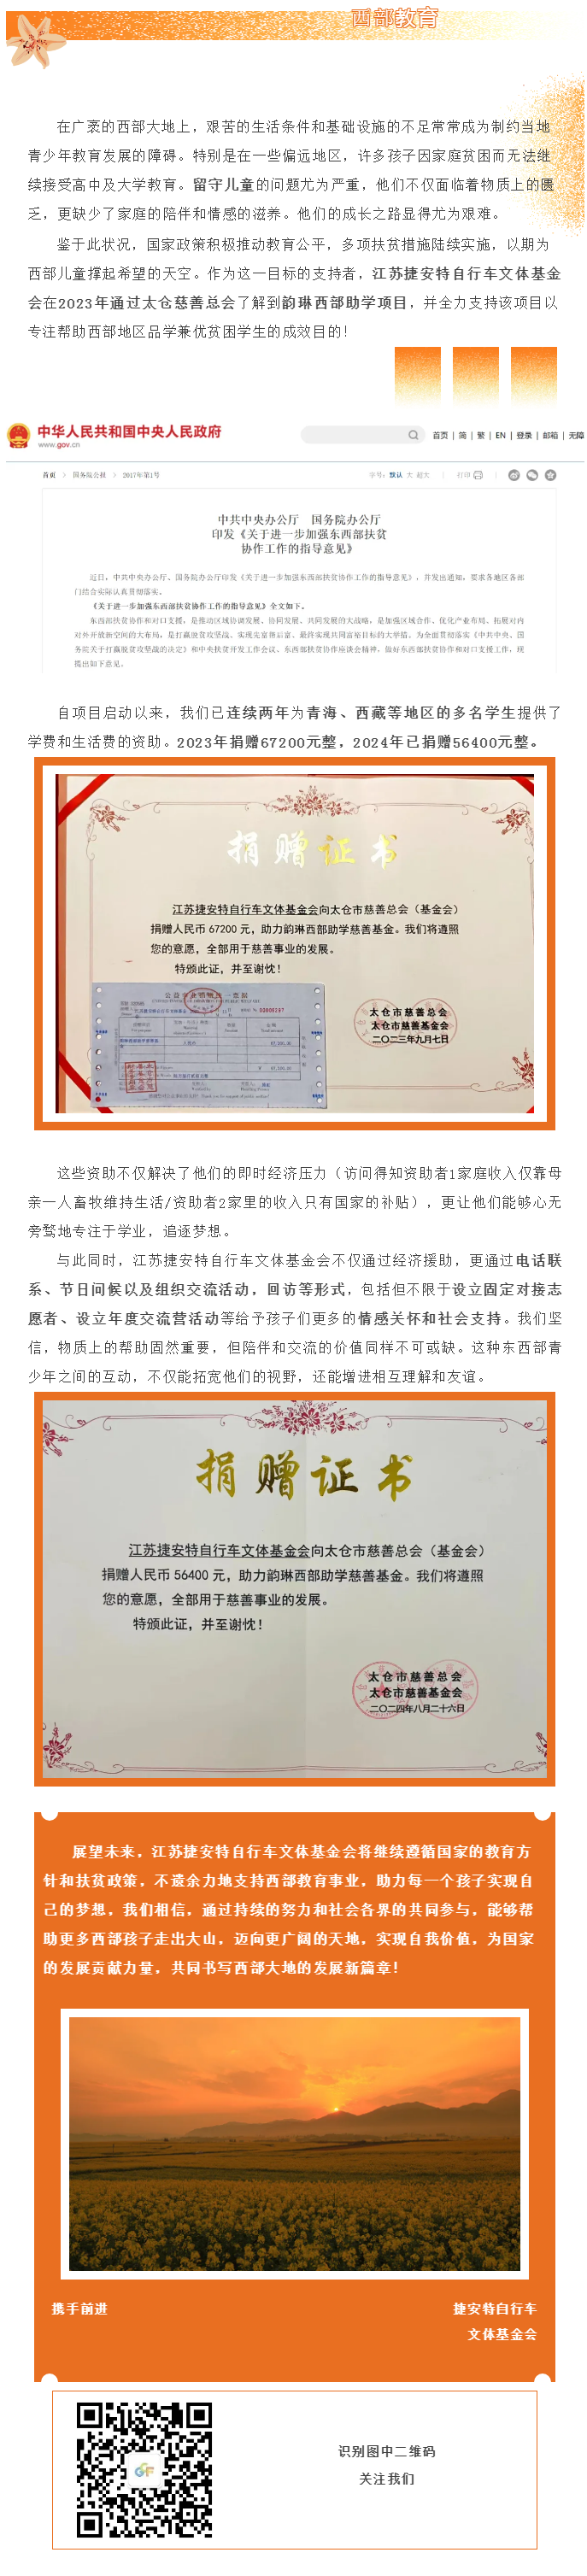 西部教育
在广袤的西部大地上，艰苦的生活条件和基础设施的不足常常成为制约当地
青少年教育发展的障碍。特别是在一些偏远地区，许多孩子因家庭贫困而无法继
续接受高中及大学教育。留守儿童的问题尤为严重，他们不仅面临着物质上的匮
乏，更缺少了家庭的陪伴和情感的滋养。他们的成长之路显得尤为艰难。
鉴于此状况，国家政策积极推动教育公平，多项扶贫措施陆续实施，以期为
西部儿童撑起希望的天空。作为这一目标的支持者，江苏捷安特自行车文体基金
会在2023年通过太仓慈善总会了解到韵琳西部助学项目，并全力支持该项目以
专注帮助西部地区品学兼优贫困学生的成效目的！
中华人民共和国中央人民政府
www.gov.cn
首页 | 简 | 繁 | EN | 登录 | 邮箱 | 无障
首页 > 国务院公报 > 2017年第1号
字号：默认 大 超大 | 打印
中共中央办公厅 国务院办公厅
印发《关于进一步加强东西部扶贫
协作工作的指导意见》
近日，中共中央办公厅、国务院办公厅印发《关于进一步加强东西部扶贫协作工作的指导意见》，并发出通知，要求各地区各部
门结合实际认真贯彻落实。
《关于进一步加强东西部扶贫协作工作的指导意见》全文如下。
东西部扶贫协作和对口支援，是推动区域协调发展、协同发展、共同发展的大战略，是加强区域合作、优化产业布局、拓展对内
对外开放新空间的大布局，是打赢脱贫攻坚战、实现先富帮后富、最终实现共同富裕目标的大举措。为全面贯彻落实《中共中央、国
务院关于打赢脱贫攻坚战的决定》和中央扶贫开发工作会议、东西部扶贫协作座谈会精神，做好东西部扶贫协作和对口支援工作，现
提出如下意见。
自项目启动以来，我们已连续两年为青海、西藏等地区的多名学生提供了
学费和生活费的资助。2023年捐赠67200元整，2024年已捐赠56400元整。
捐赠证书
江苏捷安特自行车文体基金会向太仓市慈善总会（基金会）
捐赠人民币 67200 元，助力韵琳西部助学慈善基金。我们将遵照
您的意愿，全部用于慈善事业的发展。
特颁此证，并至谢忱！
太仓市慈善总会
太仓市慈善基金会
二〇二三年九月七日
这些资助不仅解决了他们的即时经济压力（访问得知资助者1家庭收入仅靠母
亲一人畜牧维持生活/资助者2家里的收入只有国家的补贴），更让他们能够心无
旁骛地专注于学业，追逐梦想。
与此同时，江苏捷安特自行车文体基金会不仅通过经济援助，更通过电话联
系、节日问候以及组织交流活动，回访等形式，包括但不限于设立固定对接志
愿者、设立年度交流营活动等给予孩子们更多的情感关怀和社会支持。我们坚
信，物质上的帮助固然重要，但陪伴和交流的价值同样不可或缺。这种东西部青
少年之间的互动，不仅能拓宽他们的视野，还能增进相互理解和友谊。
捐赠证书
江苏捷安特自行车文体基金会向太仓市慈善总会（基金会）
捐赠人民币 56400 元，助力韵琳西部助学慈善基金。我们将遵照
您的意愿，全部用于慈善事业的发展。
特颁此证，并至谢忱！
太仓市慈善总会
太仓市慈善基金会
二〇二四年八月二十六日
展望未来，江苏捷安特自行车文体基金会将继续遵循国家的教育方
针和扶贫政策，不遗余力地支持西部教育事业，助力每一个孩子实现自
己的梦想，我们相信，通过持续的努力和社会各界的共同参与，能够帮
助更多西部孩子走出大山，迈向更广阔的天地，实现自我价值，为国家
的发展贡献力量，共同书写西部大地的发展新篇章！
携手前进
捷安特自行车
文体基金会
识别图中二维码
关注我们